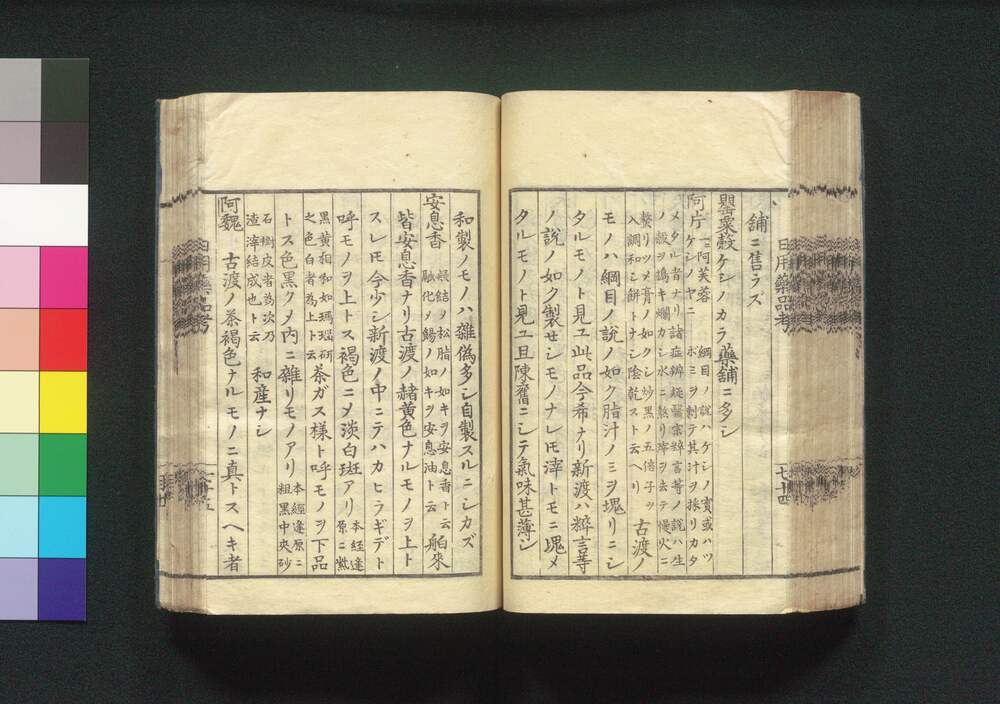 舗ニ售ラズ
罌粟殻 ケシノカラ藥舗ニ多シ
阿片 一ニ阿芙蓉 ケシノヤニ 綱目ノ説ハケシノ實或ハツボミヲ刺テ其汁ヲ採リカタ
メタル者ナリ諸症辨疑醫宗粹言等ノ説ハ生ノ殻ヲ搗キ爛カシ水ニ熬リ滓ヲ去テ慢火ニ
熬リツメ膏ノ如クシ炒黒ノ五倍子ヲ入調和シ餅トナシ陰乾スト云ヘリ 古渡ノ
モノハ綱目ノ説ノ如ク脂汁ノミヲ塊リニシ
タルモノト見ユ此品今希ナリ新渡ハ粹言等
ノ説ノ如ク製セシモノナレ𪜈滓トモニ塊メ
タルモノト見ユ且陳舊ニシテ氣味甚薄シ
和製ノモノハ雜偽多シ自製スルニシカズ
安息香 ノ松脂ノ如キヲ安息香ト云融化ノ餳ノ如キヲ安息油ト云 舶來
皆安息香ナリ古渡ノ赭黄色ナルモノヲ上ト
スレ𪜈今少シ新渡ノ中ニテハカヒラギデト
呼モノヲ上トス褐色ニメ淡白斑アリ 本經逢原ニ
黒黄相和如瑪瑙斫之色白者為上ト云 茶ガス樣ト呼モノヲ下品
トス色黒クメ内ニ雜リモノアリ 本經逢原ニ粗黒中夾砂
石樹皮者為次乃渣滓結成也ト云 和産ナシ
阿魏 古渡ノ茶褐色ナルモノニ真トスヘキ者
日用藥品考
七十四
日用藥品考